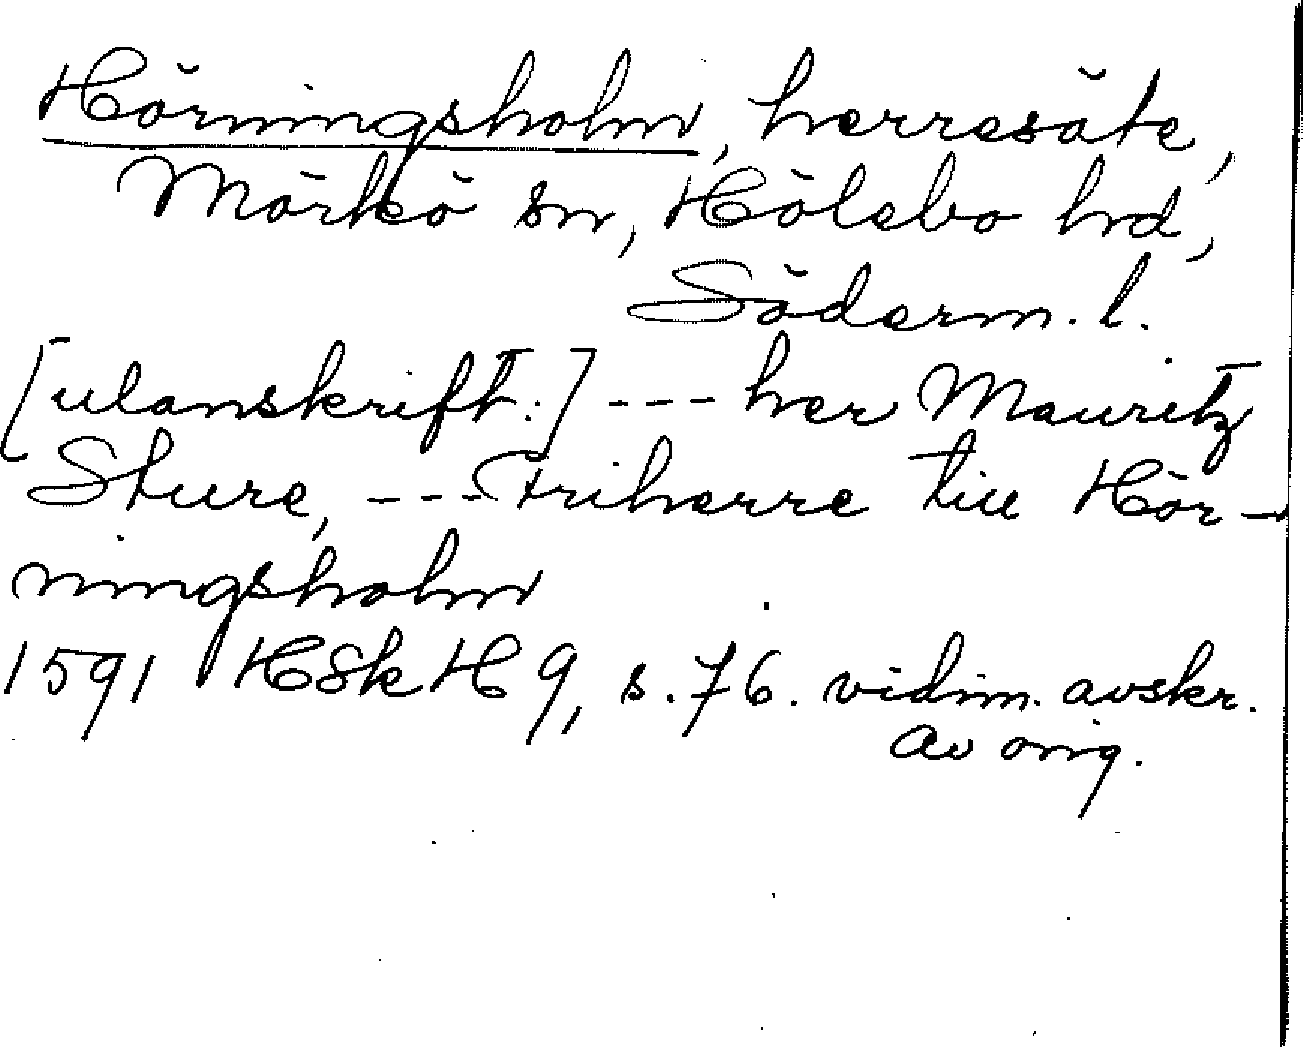 Hörningsholm, herresäte,
Mörkö sn, Hölebo hd,
Söderm. l.
[utanskrift:] --- her Mauritz
Sture, --- Friherre till Hör-
ningsholm
1591 HSkH 9, s. 76. vidim. avskr.
av orig.